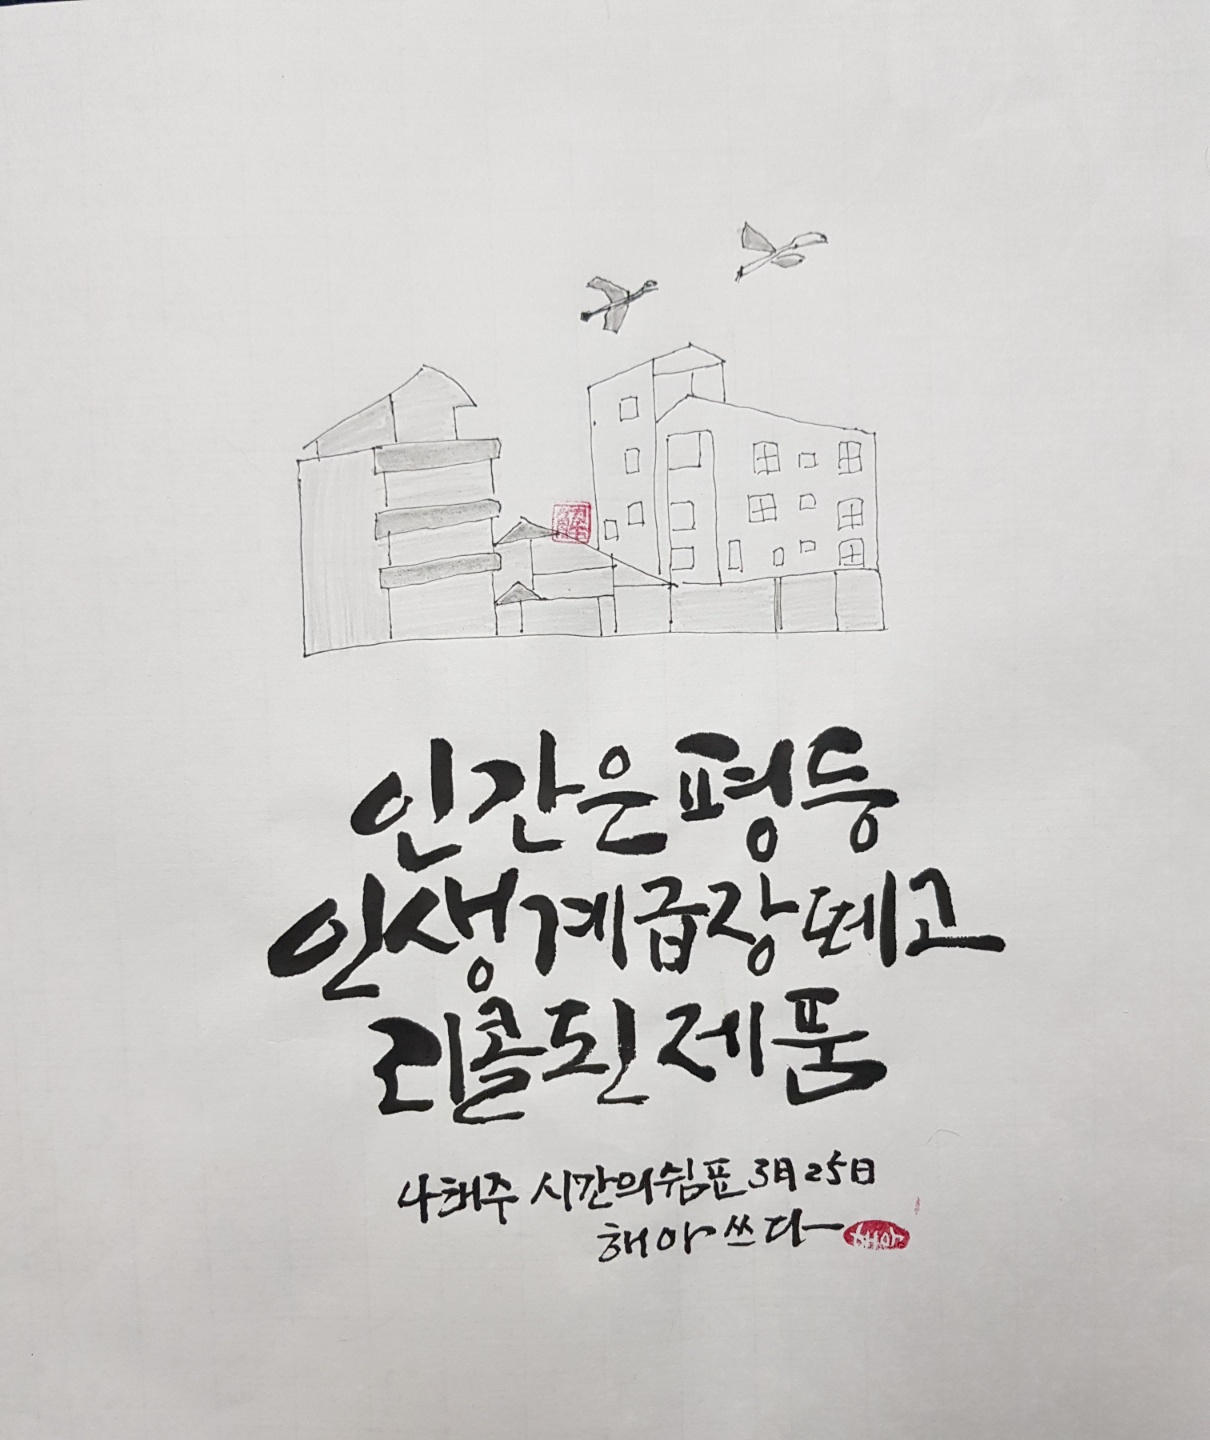 인간은 평등
인생계급장 떼고
리콜된 제품
나태주 시간의쉼표 3月25日
해아 쓰다
해아